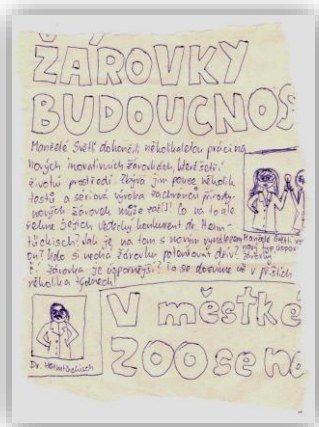 ŽÁROVKY
BUDOUCNOS
Manželé Světlí dokončili několikaletou práci na
nových inovativních žárovkách, které šetří
životní prostředí. Zbývá jim pouze několik
testů a sériová výroba zachránců přírody -
nových žárovek může začít! Co na to ale
řekne jejich vědecký konkurent dr. Ham-
Jak je na tom s novým vynálezem
on? Kdo si nechá žárovku patentovat dřív?
Či žárovka je úspornější? To se dovíme už v příštích
několika týdnech!
Manželé Světlí
a nový typ úspor
žárovky
Dr.
V městké
ZOO se na